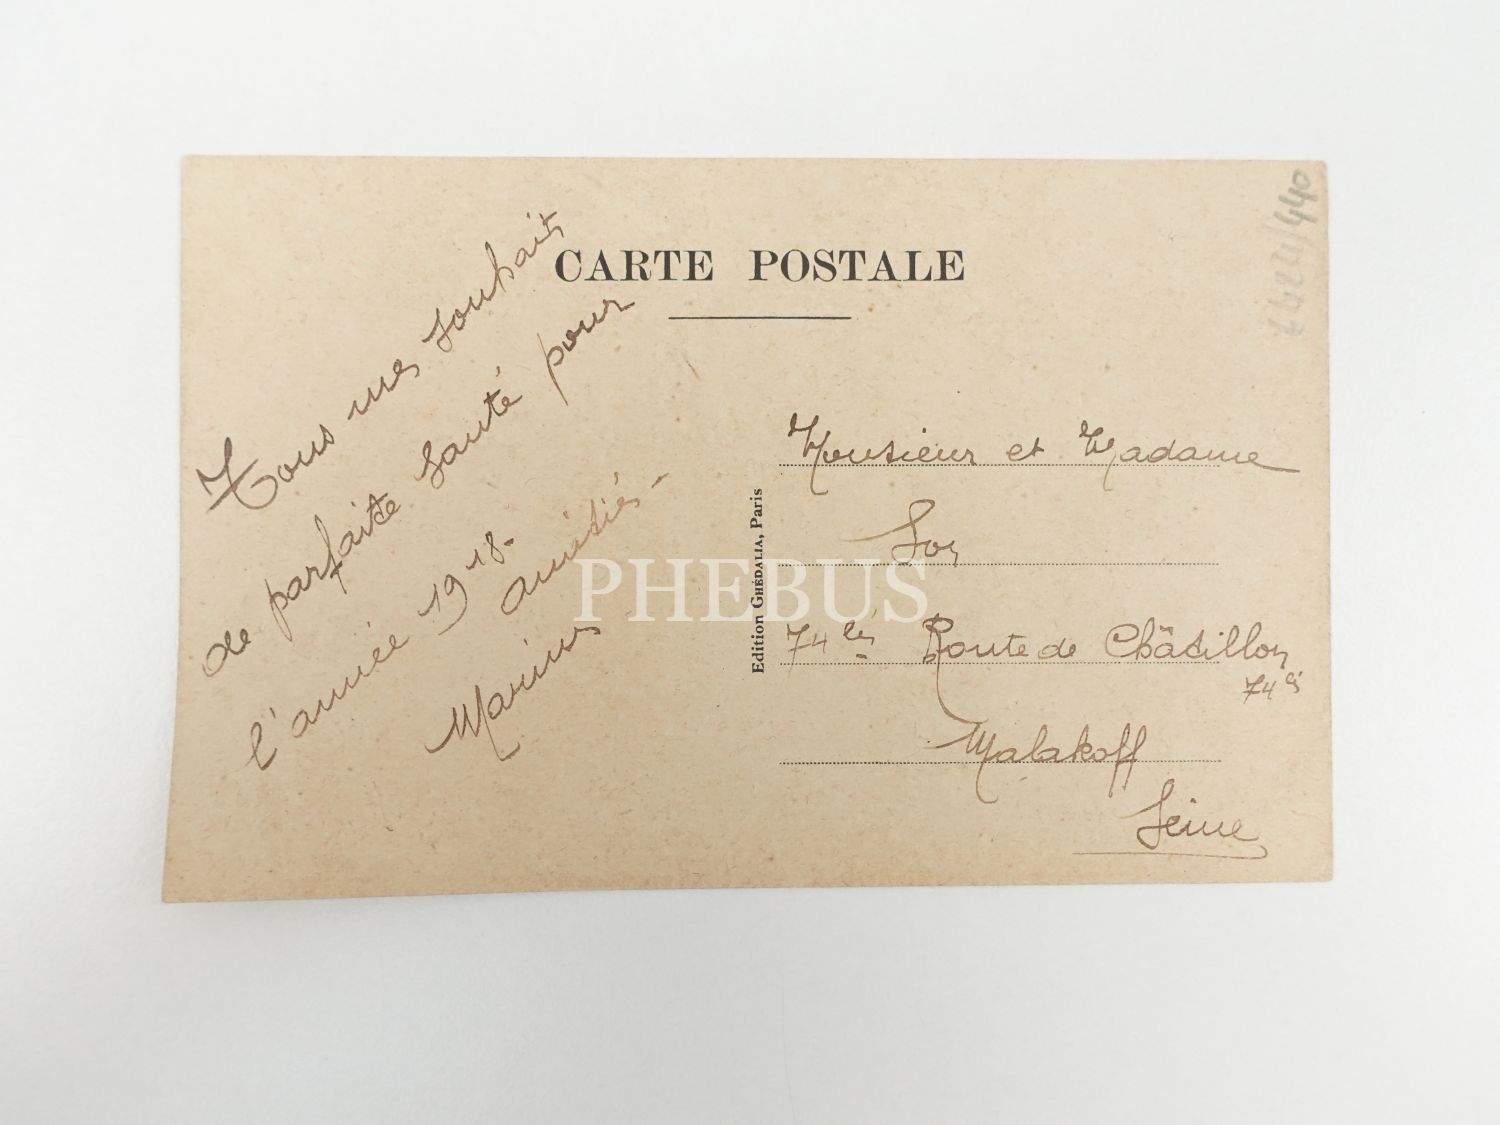 CARTE POSTALE
Tous mes souhaits
de parfaite santé pour
l'année 1918.
amitiés -
Marius
Edition GHÉDALIA, Paris
Monsieur et Madame
74 bis Route de Châtillon
74 bis
Malakoff
Seine
PHEBUS